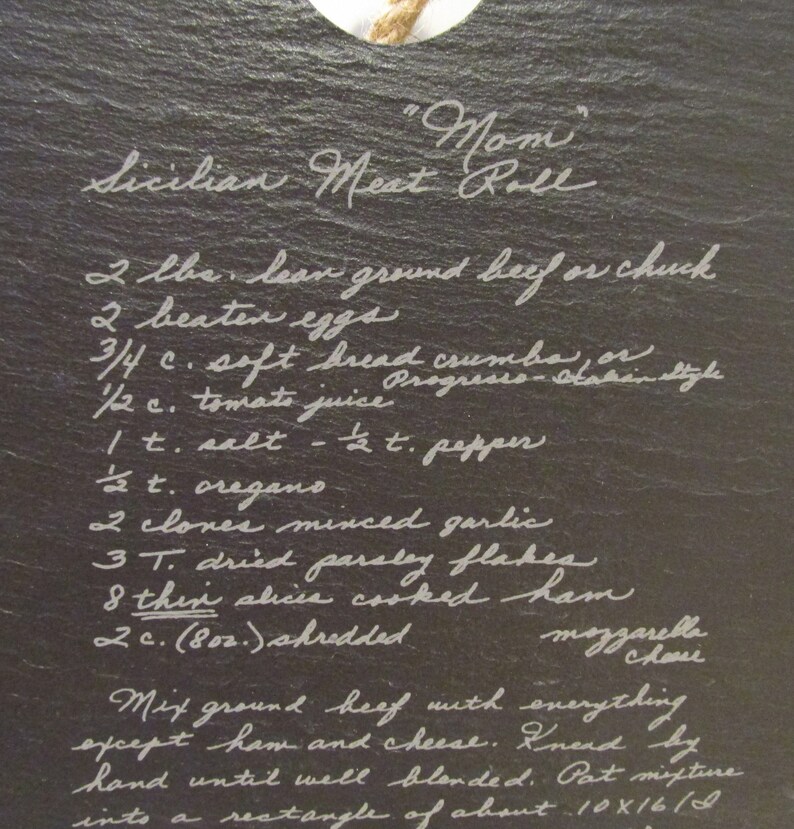 "Mom"
Sicilian Meat Roll
2 lbs. lean ground beef or chuck
2 beaten eggs
3/4 c. soft bread crumbs, or
Progresso - Italian Style
1/2 c. tomato juice
1 t. salt - 1/2 t. pepper
1/2 t. oregano
2 cloves minced garlic
3 T. dried parsley flakes
8 thin slices cooked ham
2 c. (8oz.) shredded mozzarella
cheese
Mix ground beef with everything
except ham and cheese. Knead by
hand until well blended. Pat mixture
into a rectangle of about 10X16